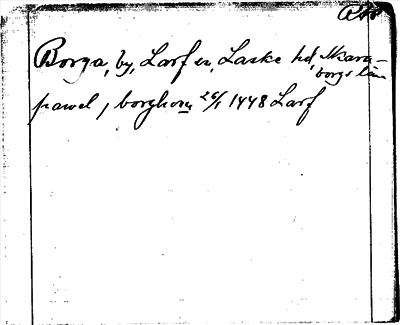 Borga, by, Larf sn, Laske hd, Skara-
borgs län
pawel, borghom 26/1 1448 Larf